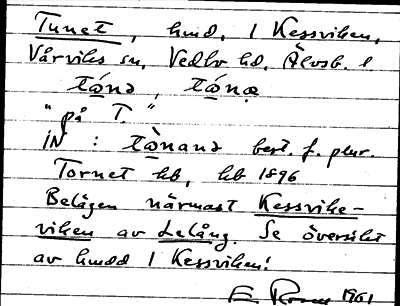 Tunet, hmd, 1 Kessviken,
Vårviks sn, Vedbo hd, Älvsb. l
tɷ̀nə, tɷ́nə
"på T."
IN : tɷ̀nanə best. f. plur.
Tornet hb, kb 1896
Belägen närmast Kessvike-
viken av Lelång. Se översikt
av hmdd 1 Kessviken!
1961